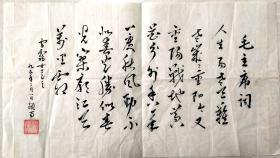 毛主席词
人生易老天難
老歲歲重阳今又
重陽戰地黄
花分外香一年
一度秋風勁不
似春光勝似春
光寥廓江天
萬里霜